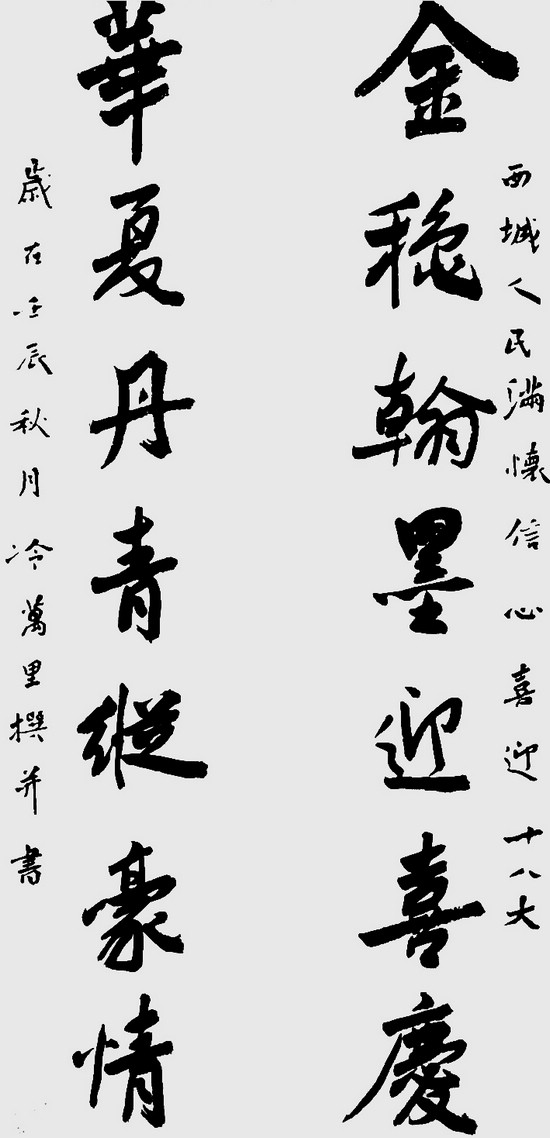 西城人民滿懷信心喜迎十八大
金穐翰墨迎喜慶
華夏丹青縱豪情
歲在壬辰秋月冷萬里撰并書